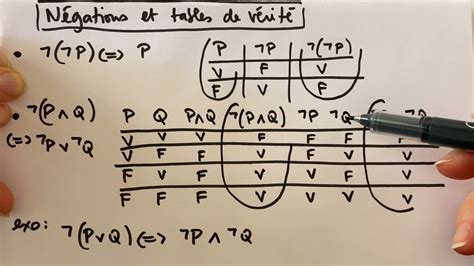 Négations et tables de vérité
• ¬(¬P) <=> P
P ¬P ¬(¬P)
V F V
F V F
• ¬(P∧Q) <=> ¬P∨¬Q
P Q P∧Q ¬(P∧Q) ¬P ¬Q
V V V F F F
V F F V F V V
F V F V V F V
F F F V V V V
exo: ¬(P∨Q) <=> ¬P∧¬Q